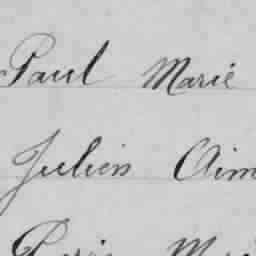 Paul Marie
Julien Aim